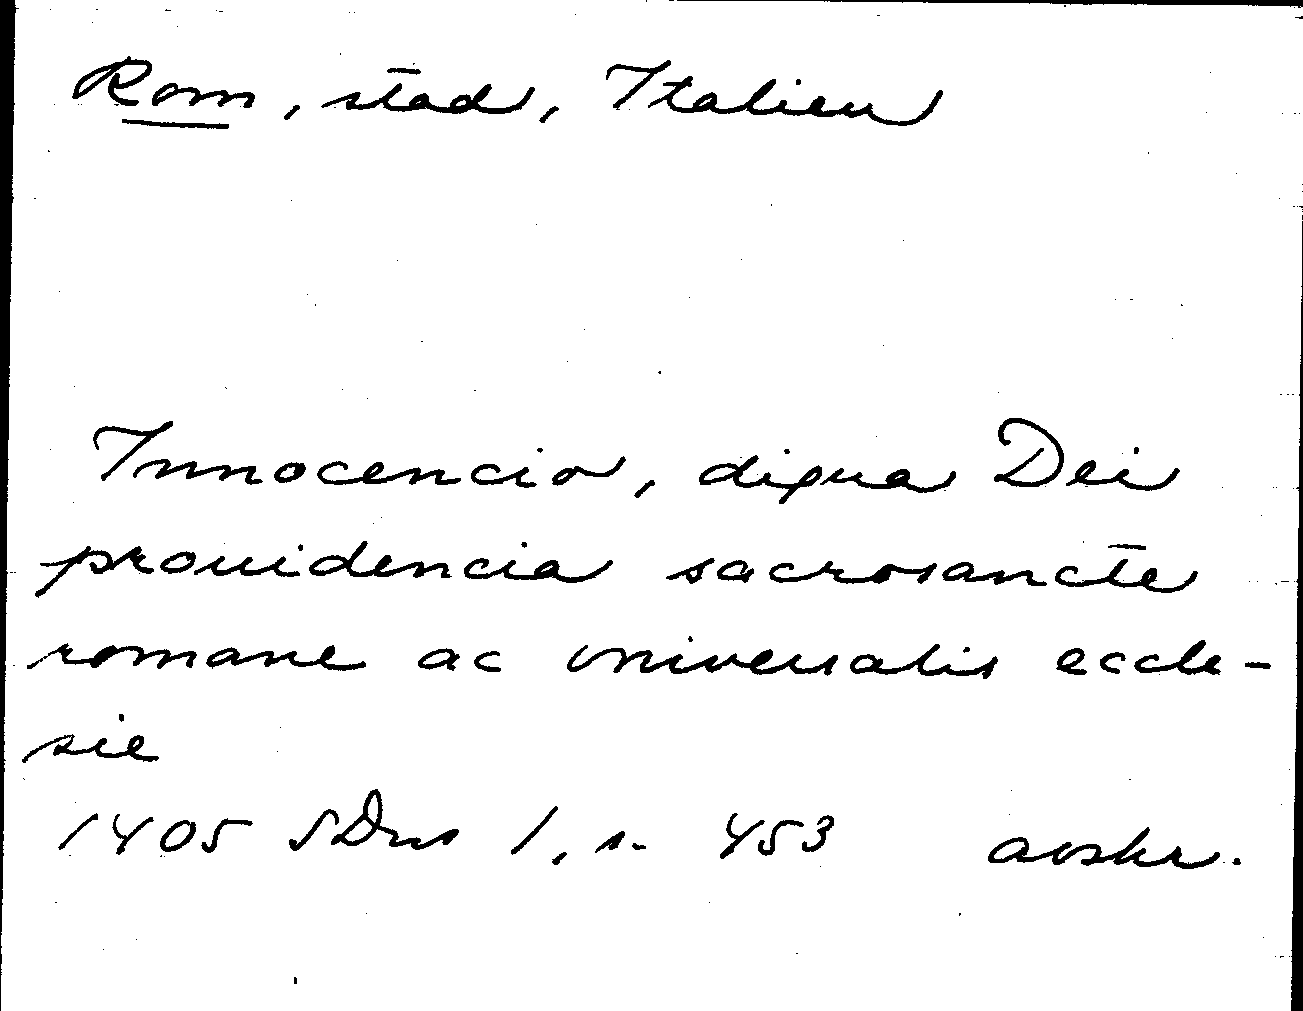 Rom, stad, Italien
Innocencio, digna Dei
prouidencia sacrosancte
romane ac vniversalis eccle-
sie
1405 SDns 1, s. 453 avskr.